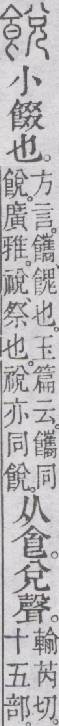 䬽
小餟也。
方言。䭨、餽也。玉篇云。䭨同
䬽。廣雅。祱、祭也。祱亦同䬽。
从𠊊兌聲。
輸芮切。
十五部。